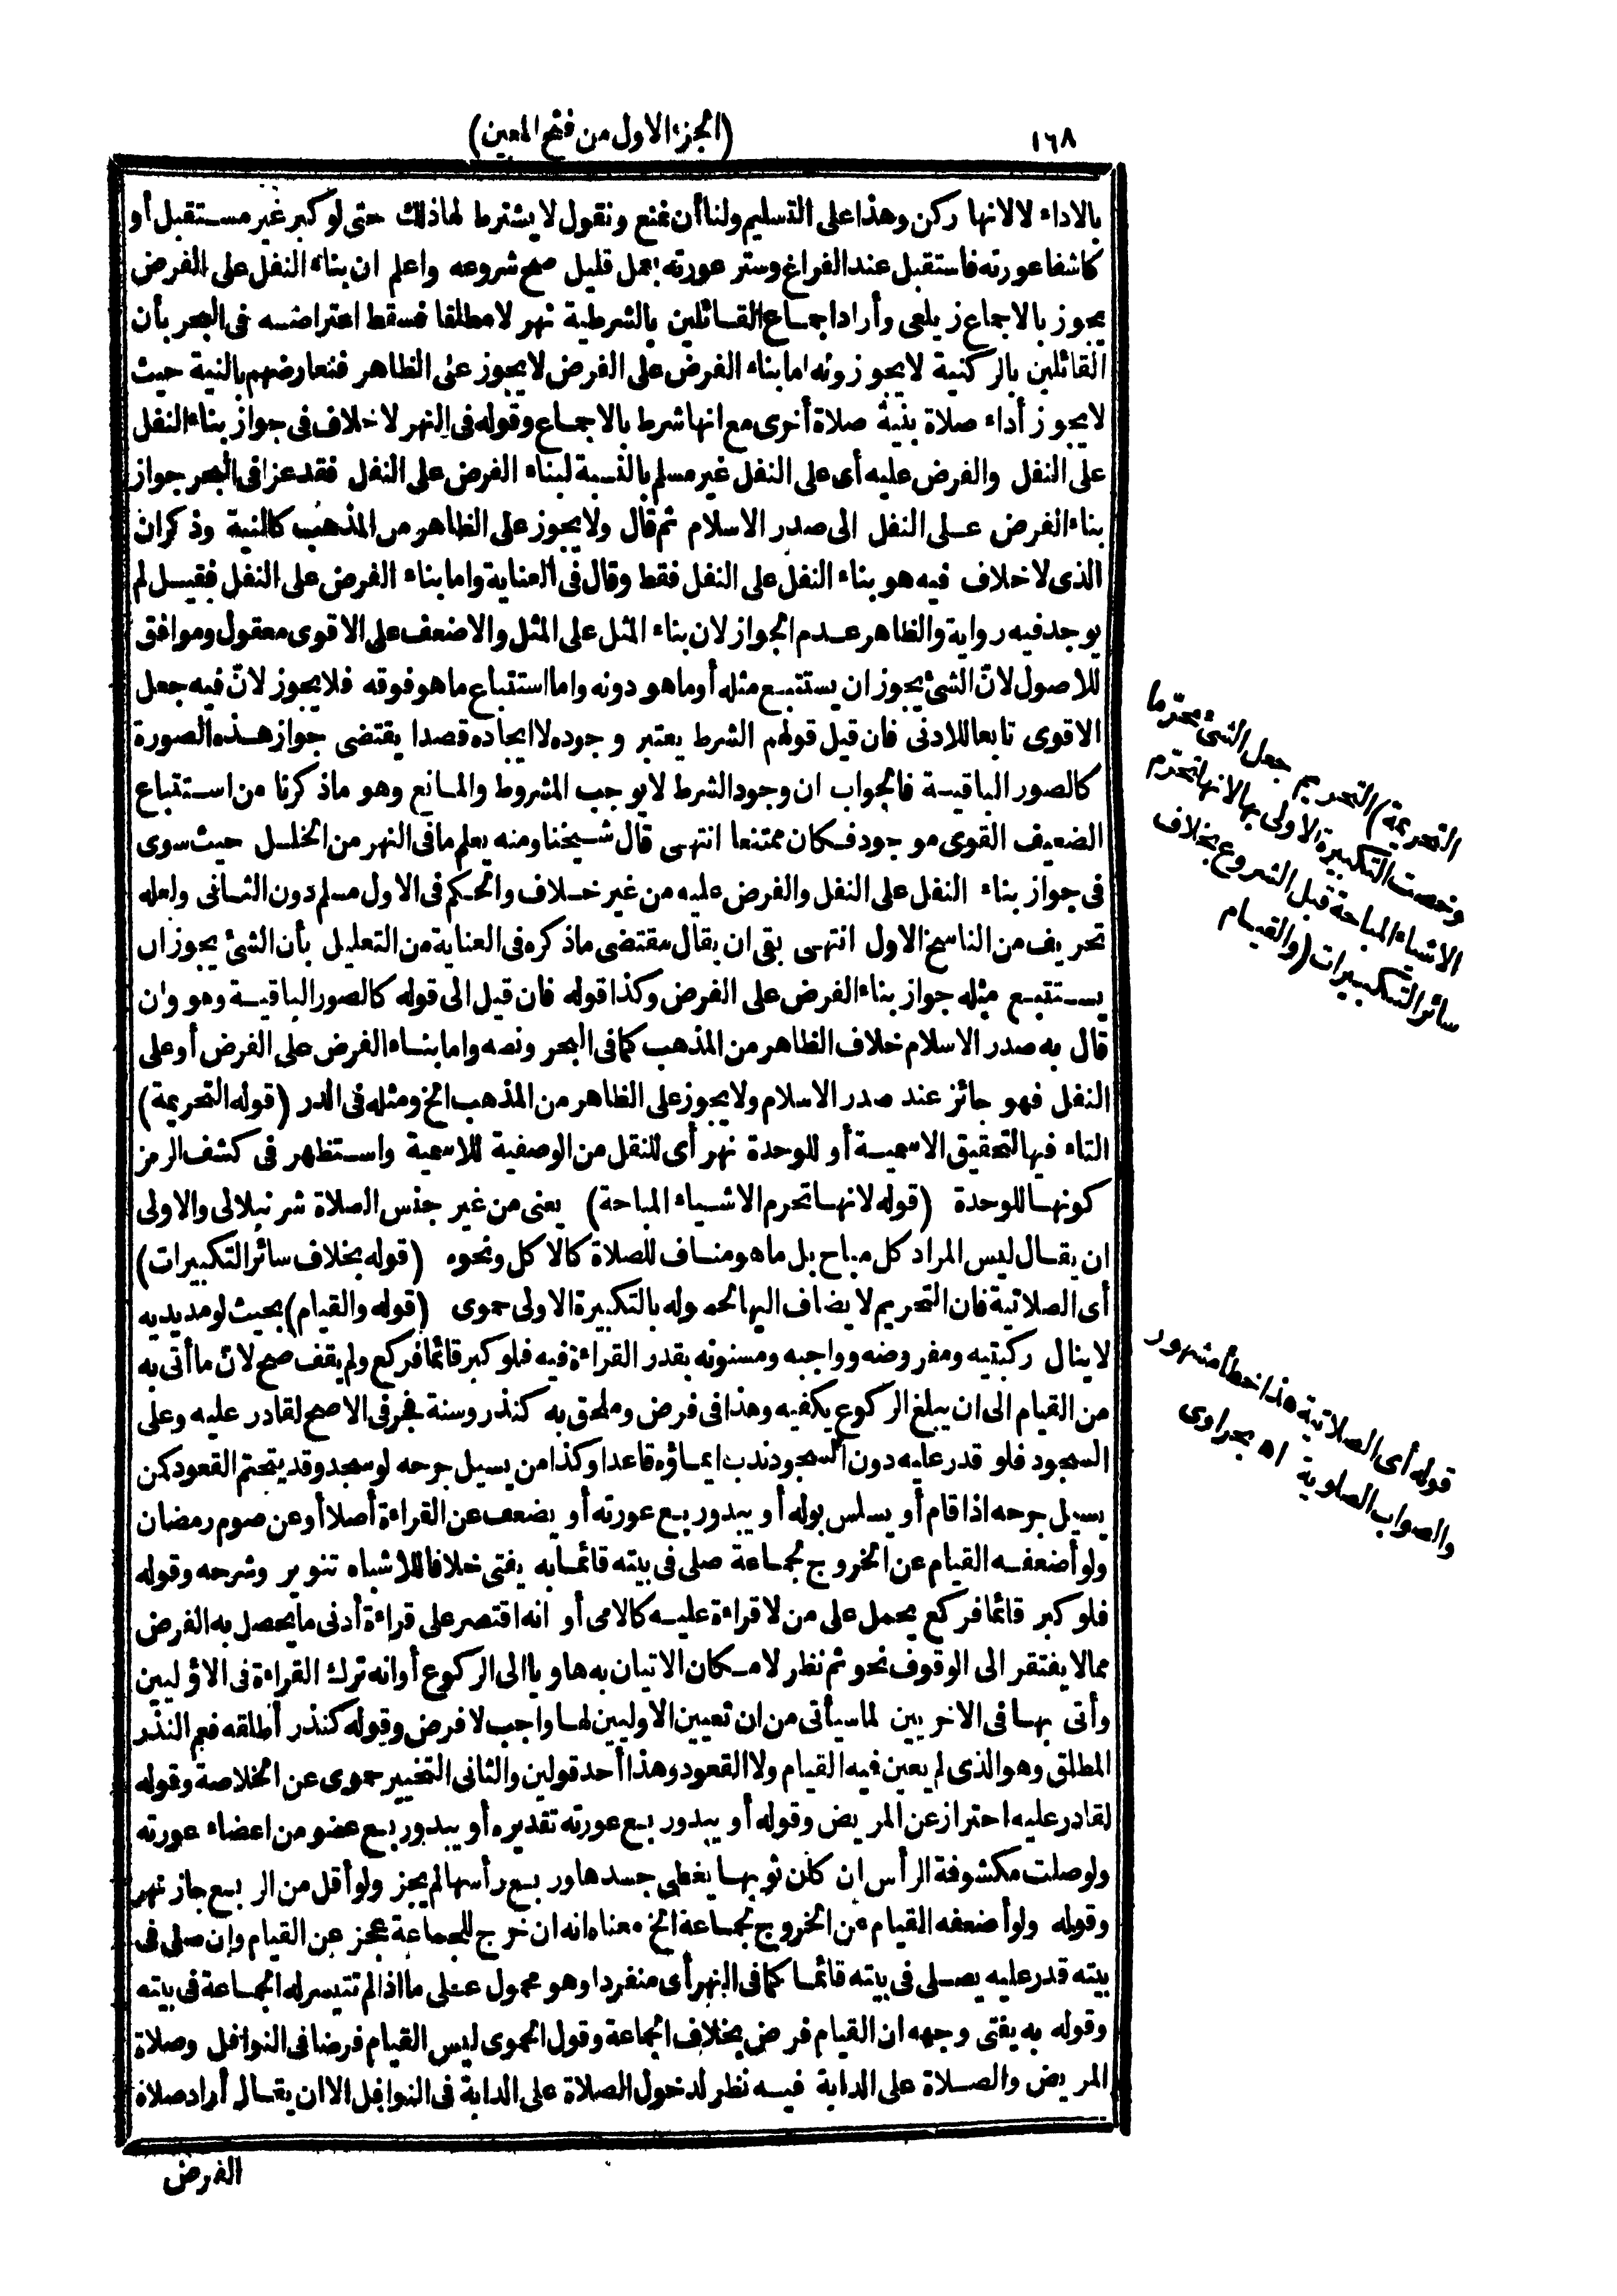 ١٦٨
(الجزء الاول من فتح المعين)
بالاداء لا لانها ركن وهذا على التسليم ولنا أن نمنع ونقول لا يشترط لها ذلك حتى لو كبر غير مستقبل أو
كاشفا عورته فاستقبل عند الفراغ وستر عورته بعمل قليل صح شروعه واعلم ان بناء النفل على الفرض
يجوز بالاجماع زيلعى وأراد اجماع القائلين بالشرطية نهر لا مطلقا فسقط اعتراضه فى البحر بأن
القائلين بالركنية لا يجوزونه اما بناء الفرض على الفرض لا يجوز على الظاهر فنعارضهم بالنية حيث
لا يجوز أداء صلاة بنية صلاة أخرى مع انها شرط بالاجماع وقوله فى النهر لا خلاف فى جواز بناء النفل
على النفل والفرض عليه أى على النفل غير مسلم بالنسبة لبناء الفرض على النفل فقد عزا فى البحر جواز
بناء الفرض على النفل الى صدر الاسلام ثم قال ولا يجوز على الظاهر من المذهب كالنية وذكر ان
الذى لا خلاف فيه هو بناء النفل على النفل فقط وقال فى العناية واما بناء الفرض على النفل فقيل لم
يوجد فيه رواية والظاهر عدم الجواز لان بناء المثل على المثل والاضعف على الاقوى معقول وموافق
للاصول لانّ الشئ يجوز ان يستتبع مثله أو ما هو دونه واما استتباع ما هو فوقه فلا يجوز لانّ فيه جعل
الاقوى تابعا للادنى فان قيل قولهم الشرط يعتبر وجوده لا ايجاده قصدا يقتضى جواز هذه الصورة
كالصور الباقية فالجواب ان وجود الشرط لا يوجب المشروط والمانع وهو ما ذكرنا من استتباع
الضعيف القوى موجود فكان ممتنعا انتهى قال شيخنا ومنه يعلم ما فى النهر من الخلل حيث سوى
فى جواز بناء النفل على النفل والفرض عليه من غير خلاف والحكم فى الاول مسلم دون الثانى ولعله
تحريف من الناسخ الاول انتهى بقى ان يقال مقتضى ما ذكره فى العناية من التعليل بأن الشئ يجوز ان
يستتبع مثله جواز بناء الفرض على الفرض وكذا قوله فان قيل الى قوله كالصور الباقية وهو وان
قال به صدر الاسلام خلاف الظاهر من المذهب كما فى البحر ونصه واما بناء الفرض على الفرض أو على
النفل فهو جائز عند صدر الاسلام ولا يجوز على الظاهر من المذهب الخ ومثله فى الدر (قوله التحريمة)
التاء فيها لتحقيق الاسمية أو للوحدة نهر أى للنقل من الوصفية للاسمية واستظهر فى كشف الرمز
كونها للوحدة (قوله لانها تحرم الاشياء المباحة) يعنى من غير جنس الصلاة شرنبلالى والاولى
ان يقال ليس المراد كل مباح بل ما هو مناف للصلاة كالاكل ونحوه (قوله بخلاف سائر التكبيرات)
أى الصلاتية فان التحريم لا يضاف اليها لحصوله بالتكبيرة الاولى حموى (قوله والقيام) بحيث لو مد يديه
لا ينال ركبتيه ومفروضه وواجبه ومسنونه بقدر القراءة فيه فلو كبر قائما فركع ولم يقف صح لانّ ما أتى به
من القيام الى ان يبلغ الركوع يكفيه وهذا فى فرض وملحق به كنذر وسنة فجر فى الاصح لقادر عليه وعلى
السجود فلو قدر عليه دون السجود ندب ايماؤه قاعدا وكذا من يسيل جرحه لو سجد وقد يتحتم القعود كمن
يسيل جرحه اذا قام أو يسلس بوله أو يبدو ربع عورته أو يضعف عن القراءة أصلا أو عن صوم رمضان
ولو أضعفه القيام عن الخروج لجماعة صلى فى بيته قائما به يفتى خلافا للاشباه تنوير وشرحه وقوله
فلو كبر قائما فركع يحمل على من لا قراءة عليه كالامى أو انه اقتصر على قراءة أدنى ما يحصل به الفرض
مما لا يفتقر الى الوقوف نحو ثم نظر لامكان الاتيان به هاويا الى الركوع أو انه ترك القراءة فى الاوّليين
وأتى بها فى الاخريين لما سيأتى من ان تعيين الاوليين لها واجب لا فرض وقوله كنذر أطلقه فعم النذر
المطلق وهو الذى لم يعين فيه القيام ولا القعود وهذا أحد قولين والثانى التخيير حموى عن الخلاصة وقوله
لقادر عليه احتراز عن المريض وقوله أو يبدو ربع عورته تقديره أو يبدو ربع عضو من اعضاء عورته
ولو صلت مكشوفة الرأس ان كان ثوبها يغطى جسدها وربع رأسها لم يجز ولو أقل من الربع جاز نهر
وقوله ولو أضعفه القيام عن الخروج لجماعة الخ معناه انه ان خرج للجماعة عجز عن القيام وان صلى فى
بيته قدر عليه يصلى فى بيته قائما كما فى النهر أى منفردا وهو محمول على ما اذا لم تتيسر له الجماعة فى بيته
وقوله به يفتى وجهه ان القيام فرض بخلاف الجماعة وقول الحموى ليس القيام فرضا فى النوافل وصلاة
المريض والصلاة على الدابة فيه نظر لدخول الصلاة على الدابة فى النوافل الا ان يقال أراد صلاة
الفرض
التحريمة) التحريم جعل الشئ محرّما
وخصت التكبيرة الاولى بها لانها تحرّم
الاشياء المباحة قبل الشروع بخلاف
سائر التكبيرات (والقيام
قوله أى الصلاتية هذا خطأ مشهور
والصواب الصلوية اه بحراوى